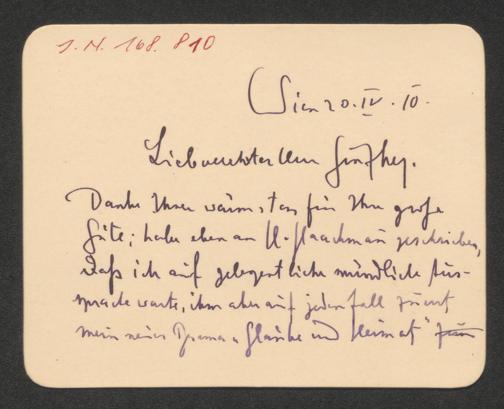 J.N. 168.810
Wien 20.IV.10.
Liebverehrter Herr
Danke Ihnen wärmstens für Ihre große
Güte; habe eben an H. geschrieben,
daß ich auf gelegentliche mündliche Aus-
sprache warte, ihm aber auf jeden Fall zuerst
mein neues Drama „Glaube und Heimat"